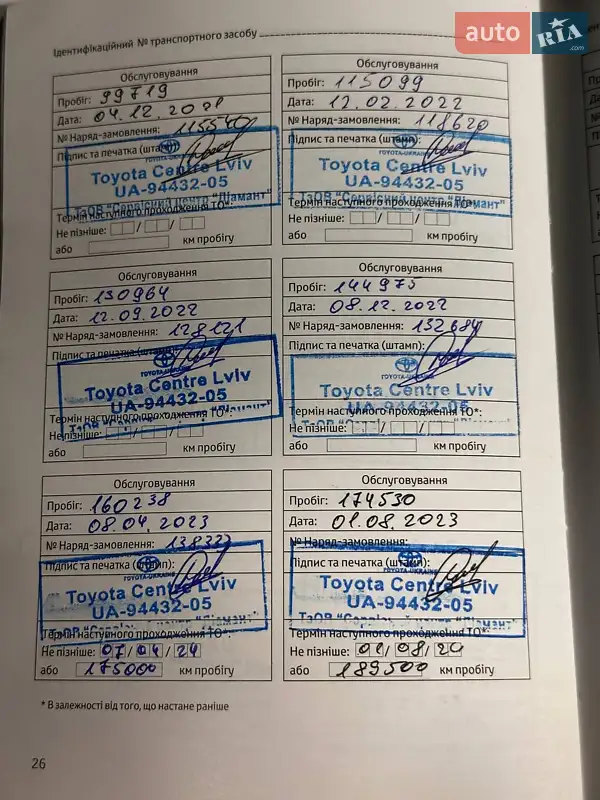 auto RIA .com
Ідентифікаційний № транспортного засобу
Обслуговування
Пробіг: 99719
Дата: 04.12.2021
№ Наряд-замовлення: 115540
Підпис та печатка (штамп):
TOYOTA-UKRAINE
Toyota Centre Lviv
UA-94432-05
ТзОВ "Сервісний центр "Діамант"
Термін наступного проходження ТО*:
Не пізніше: / /
або км пробігу
Обслуговування
Пробіг: 115099
Дата: 12.02.2022
№ Наряд-замовлення: 118620
Підпис та печатка (штамп):
TOYOTA-UKRAINE
Toyota Centre Lviv
UA-94432-05
ТзОВ "Сервісний центр "Діамант"
Термін наступного проходження ТО*:
Не пізніше: / /
або км пробігу
Обслуговування
Пробіг: 130964
Дата: 12.09.2022
№ Наряд-замовлення: 128121
Підпис та печатка (штамп):
Toyota Centre Lviv
UA-94432-05
Термін наступного проходження ТО*:
Не пізніше: / /
або км пробігу
Обслуговування
Пробіг: 144975
Дата: 08.12.2022
№ Наряд-замовлення: 132684
Підпис та печатка (штамп):
TOYOTA-UKRAINE
Toyota Centre Lviv
UA-94432-05
Термін наступного проходження ТО*:
Не пізніше: / /
або км пробігу
Обслуговування
Пробіг: 160238
Дата: 08.04.2023
№ Наряд-замовлення: 138333
Підпис та печатка (штамп):
TOYOTA-UKRAINE
Toyota Centre Lviv
UA-94432-05
Термін наступного проходження ТО*:
Не пізніше: 07/04/24
або 175000 км пробігу
Обслуговування
Пробіг: 174530
Дата: 01.08.2023
№ Наряд-замовлення:
Підпис та печатка (штамп):
TOYOTA-UKRAINE
Toyota Centre Lviv
UA-94432-05
Термін наступного проходження ТО*:
Не пізніше: 01/08/24
або 189500 км пробігу
* В залежності від того, що настане раніше
26